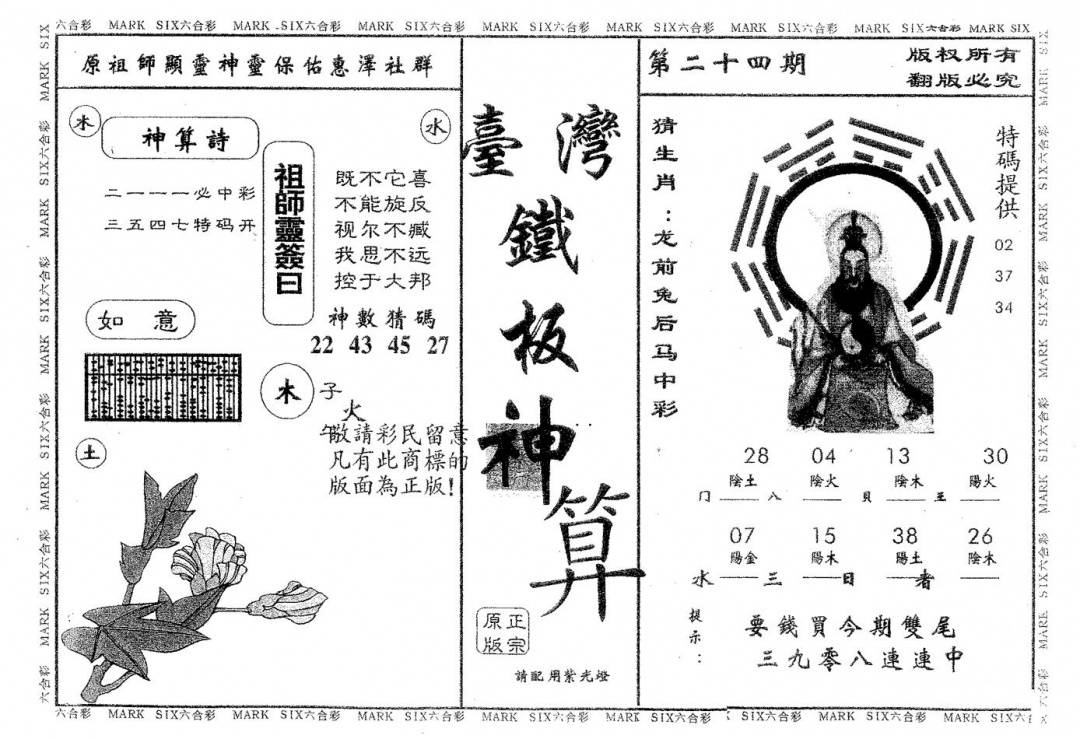 六合彩 MARK SIX六合彩 MARK SIX六合彩 MARK SIX六合彩 MARK SIX六合彩 MARK SIX六合彩 MARK SIX六合彩 MARK SIX六合彩 MARK SIX
原祖師顯靈神靈保佑惠澤社群
水
神算詩
二一一一必中彩
三五四七特码开
祖師靈簽曰
水
既不它喜
不能旋反
视尔不臧
我思不远
控于大邦
神數猜碼
22 43 45 27
如意
木
子
火
午
敬請彩民留意
凡有此商標的
版面為正版!
土
臺灣
鐵
板
神
算
原正
版宗
請配用紫光燈
第二十四期
版权所有
翻版必究
猜生肖:龙前兔后马中彩
特碼提供
02
37
34
28 04 13 30
陰土 陰火 陰木 陽火
门 八 貝 王
07 15 38 26
陽金 陽木 陽土 陰木
水 三 日 者
提示:
要錢買今期雙尾
三九零八連連中
六合彩 MARK SIX六合彩 MARK SIX六合彩 MARK SIX六合彩 MARK SIX六合彩 MARK SIX六合彩 MARK SIX六合彩 MARK SIX六合彩 MARK SIX六